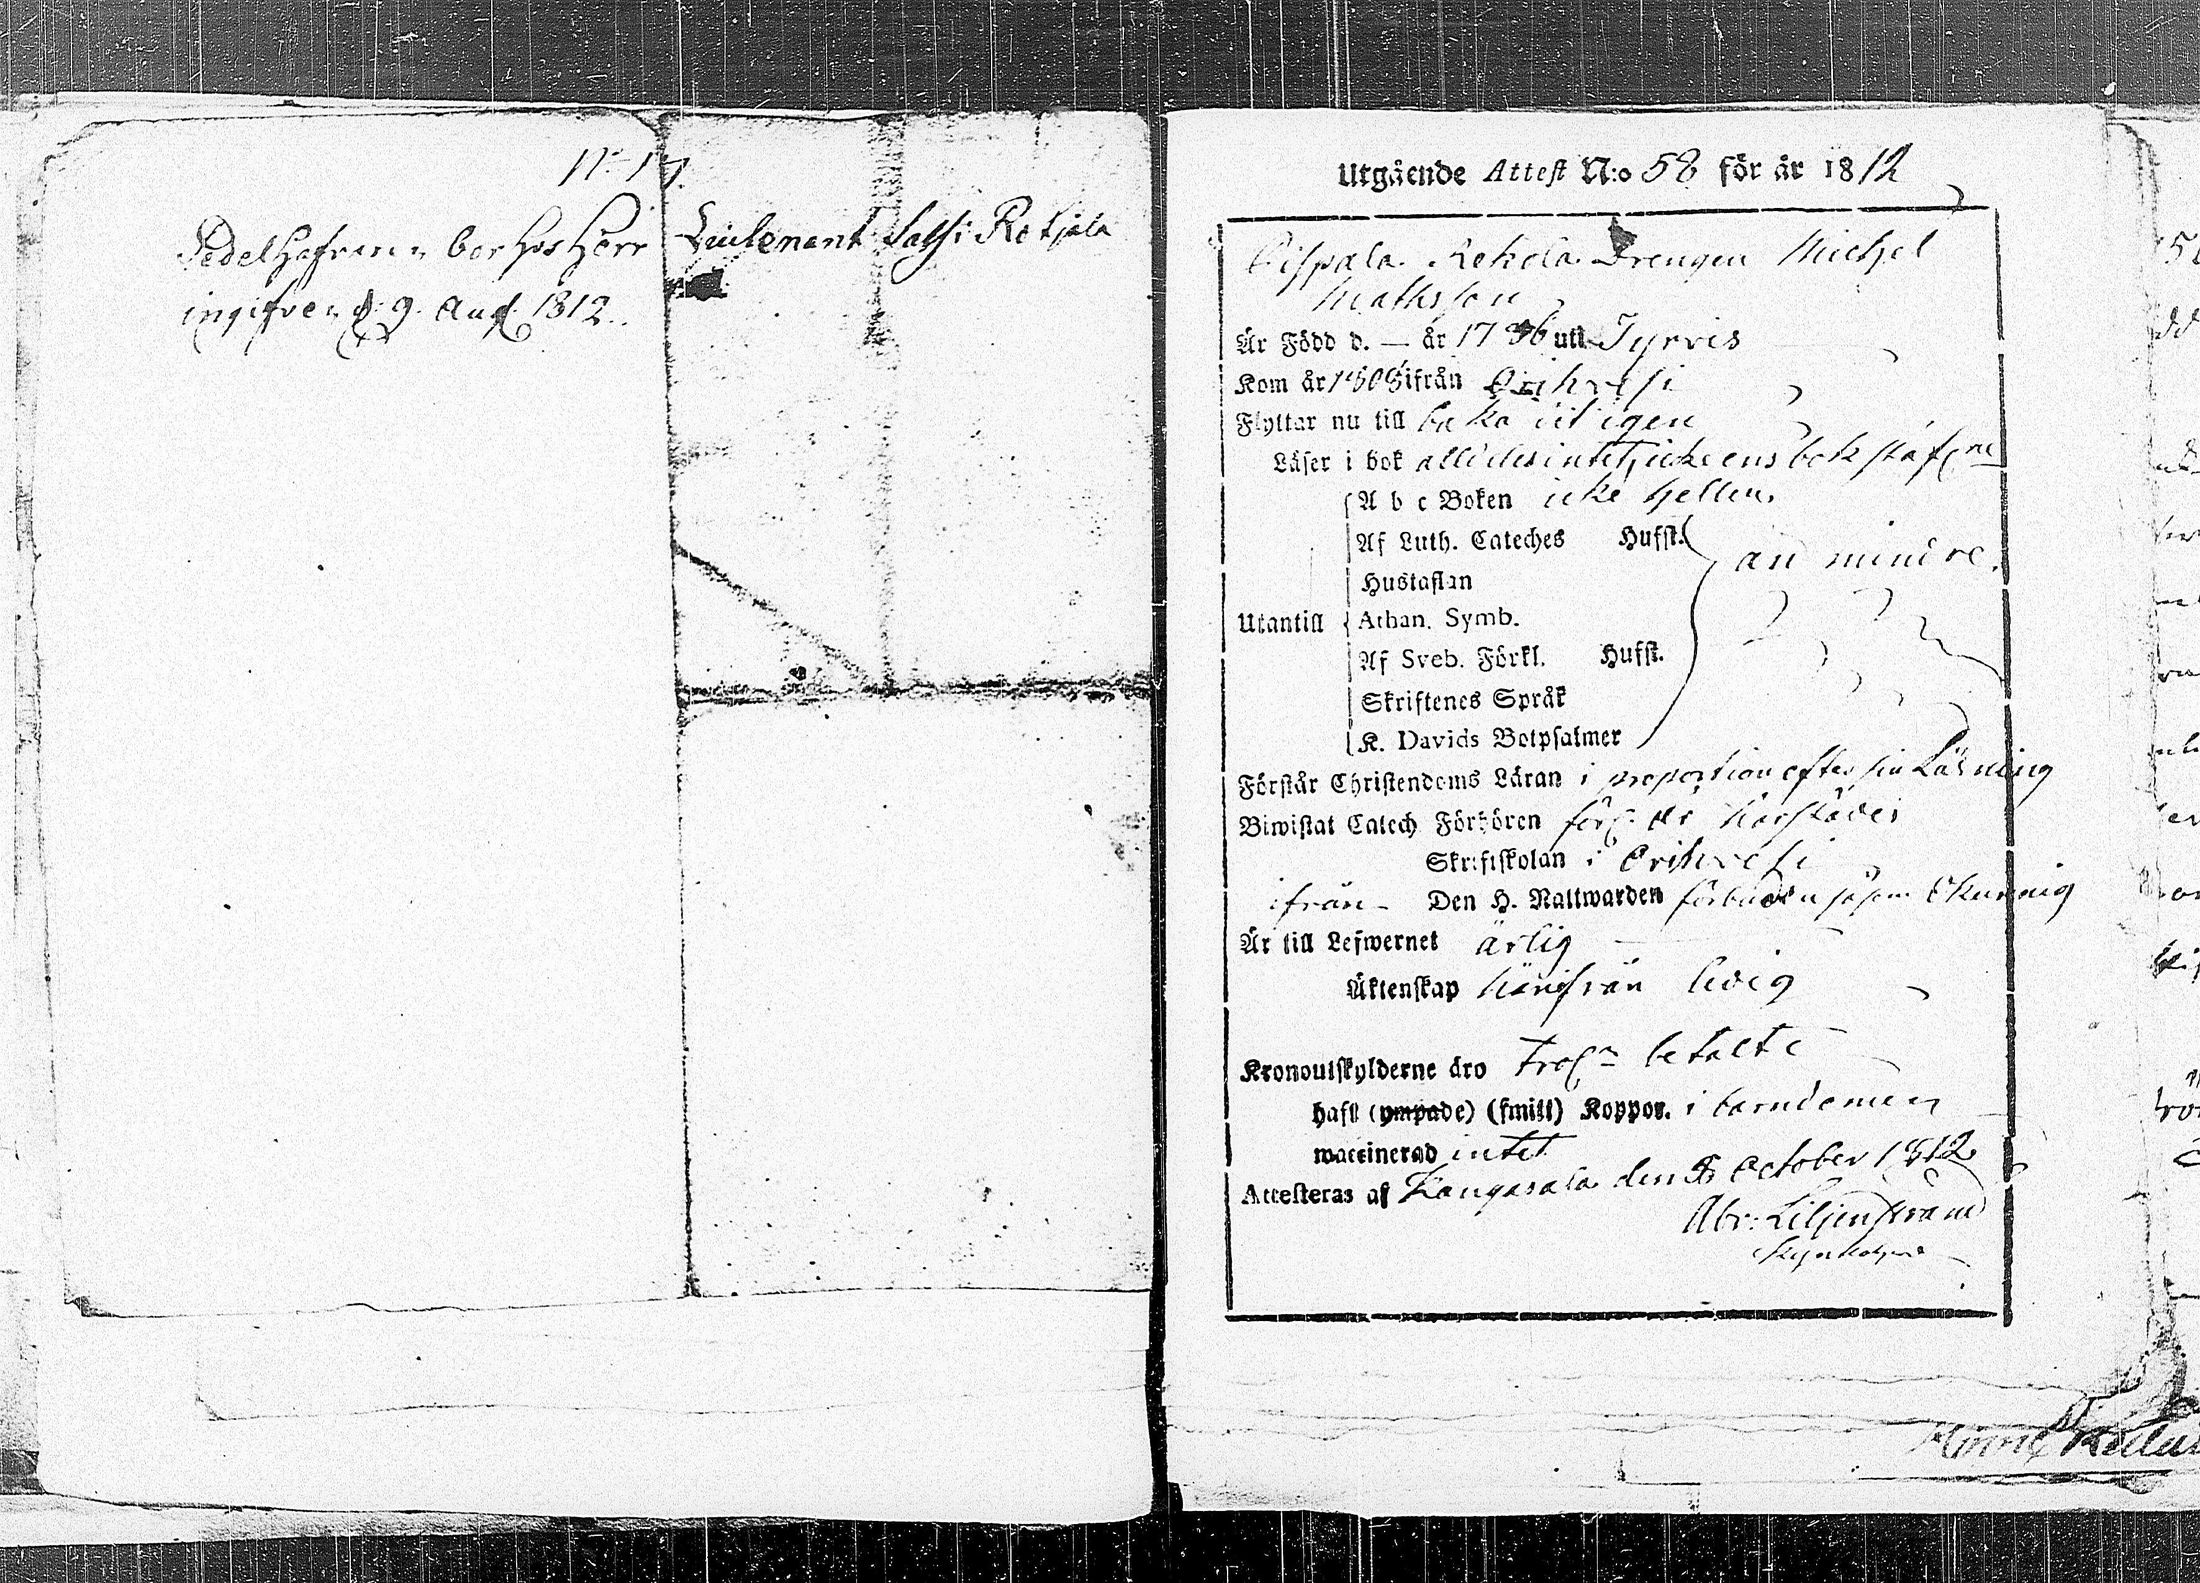 N:o 17.
Sedelhafvaren bor hos Herr Lieutenant i
ingifven d. 9. Aug. 1812.
Utgående Attest N:o 58 för år 1812
Rekola Drengen Michel
Mathsson
Är Född d. — år 17 6 uti Tyrvis
Kom år 1808 ifrån Orihvesi
Flyttar nu till baka dit igen
Läser i bok alldeles intet, icke ens bokstäfverne
A b c Boken icke heller.
Af Luth. Cateches Hufst.
än mindre.
Hustaflan
Utantill Athan. Symb.
Af Sveb. Förkl. Hufst.
Skriftenes Språk
K. Davids Botpsalmer
Förstår Christendoms Läran i proportion efter sin Läsning
Biwistat Catech Förhören förs. härstädes
Skriftskolan i Orihvesi
ifrån Den H. Nattwarden förbuden såsom Okunnig
Är till Lefwernet ärlig
Äktenskap härifrån ledig
Kronoutskylderne äro betalte
haft (ympade) (smitt) Koppor. i barndomen
waccinerad intet
Attesteras af Kangasala den 8 October 1812
Abr: Liljenstrand